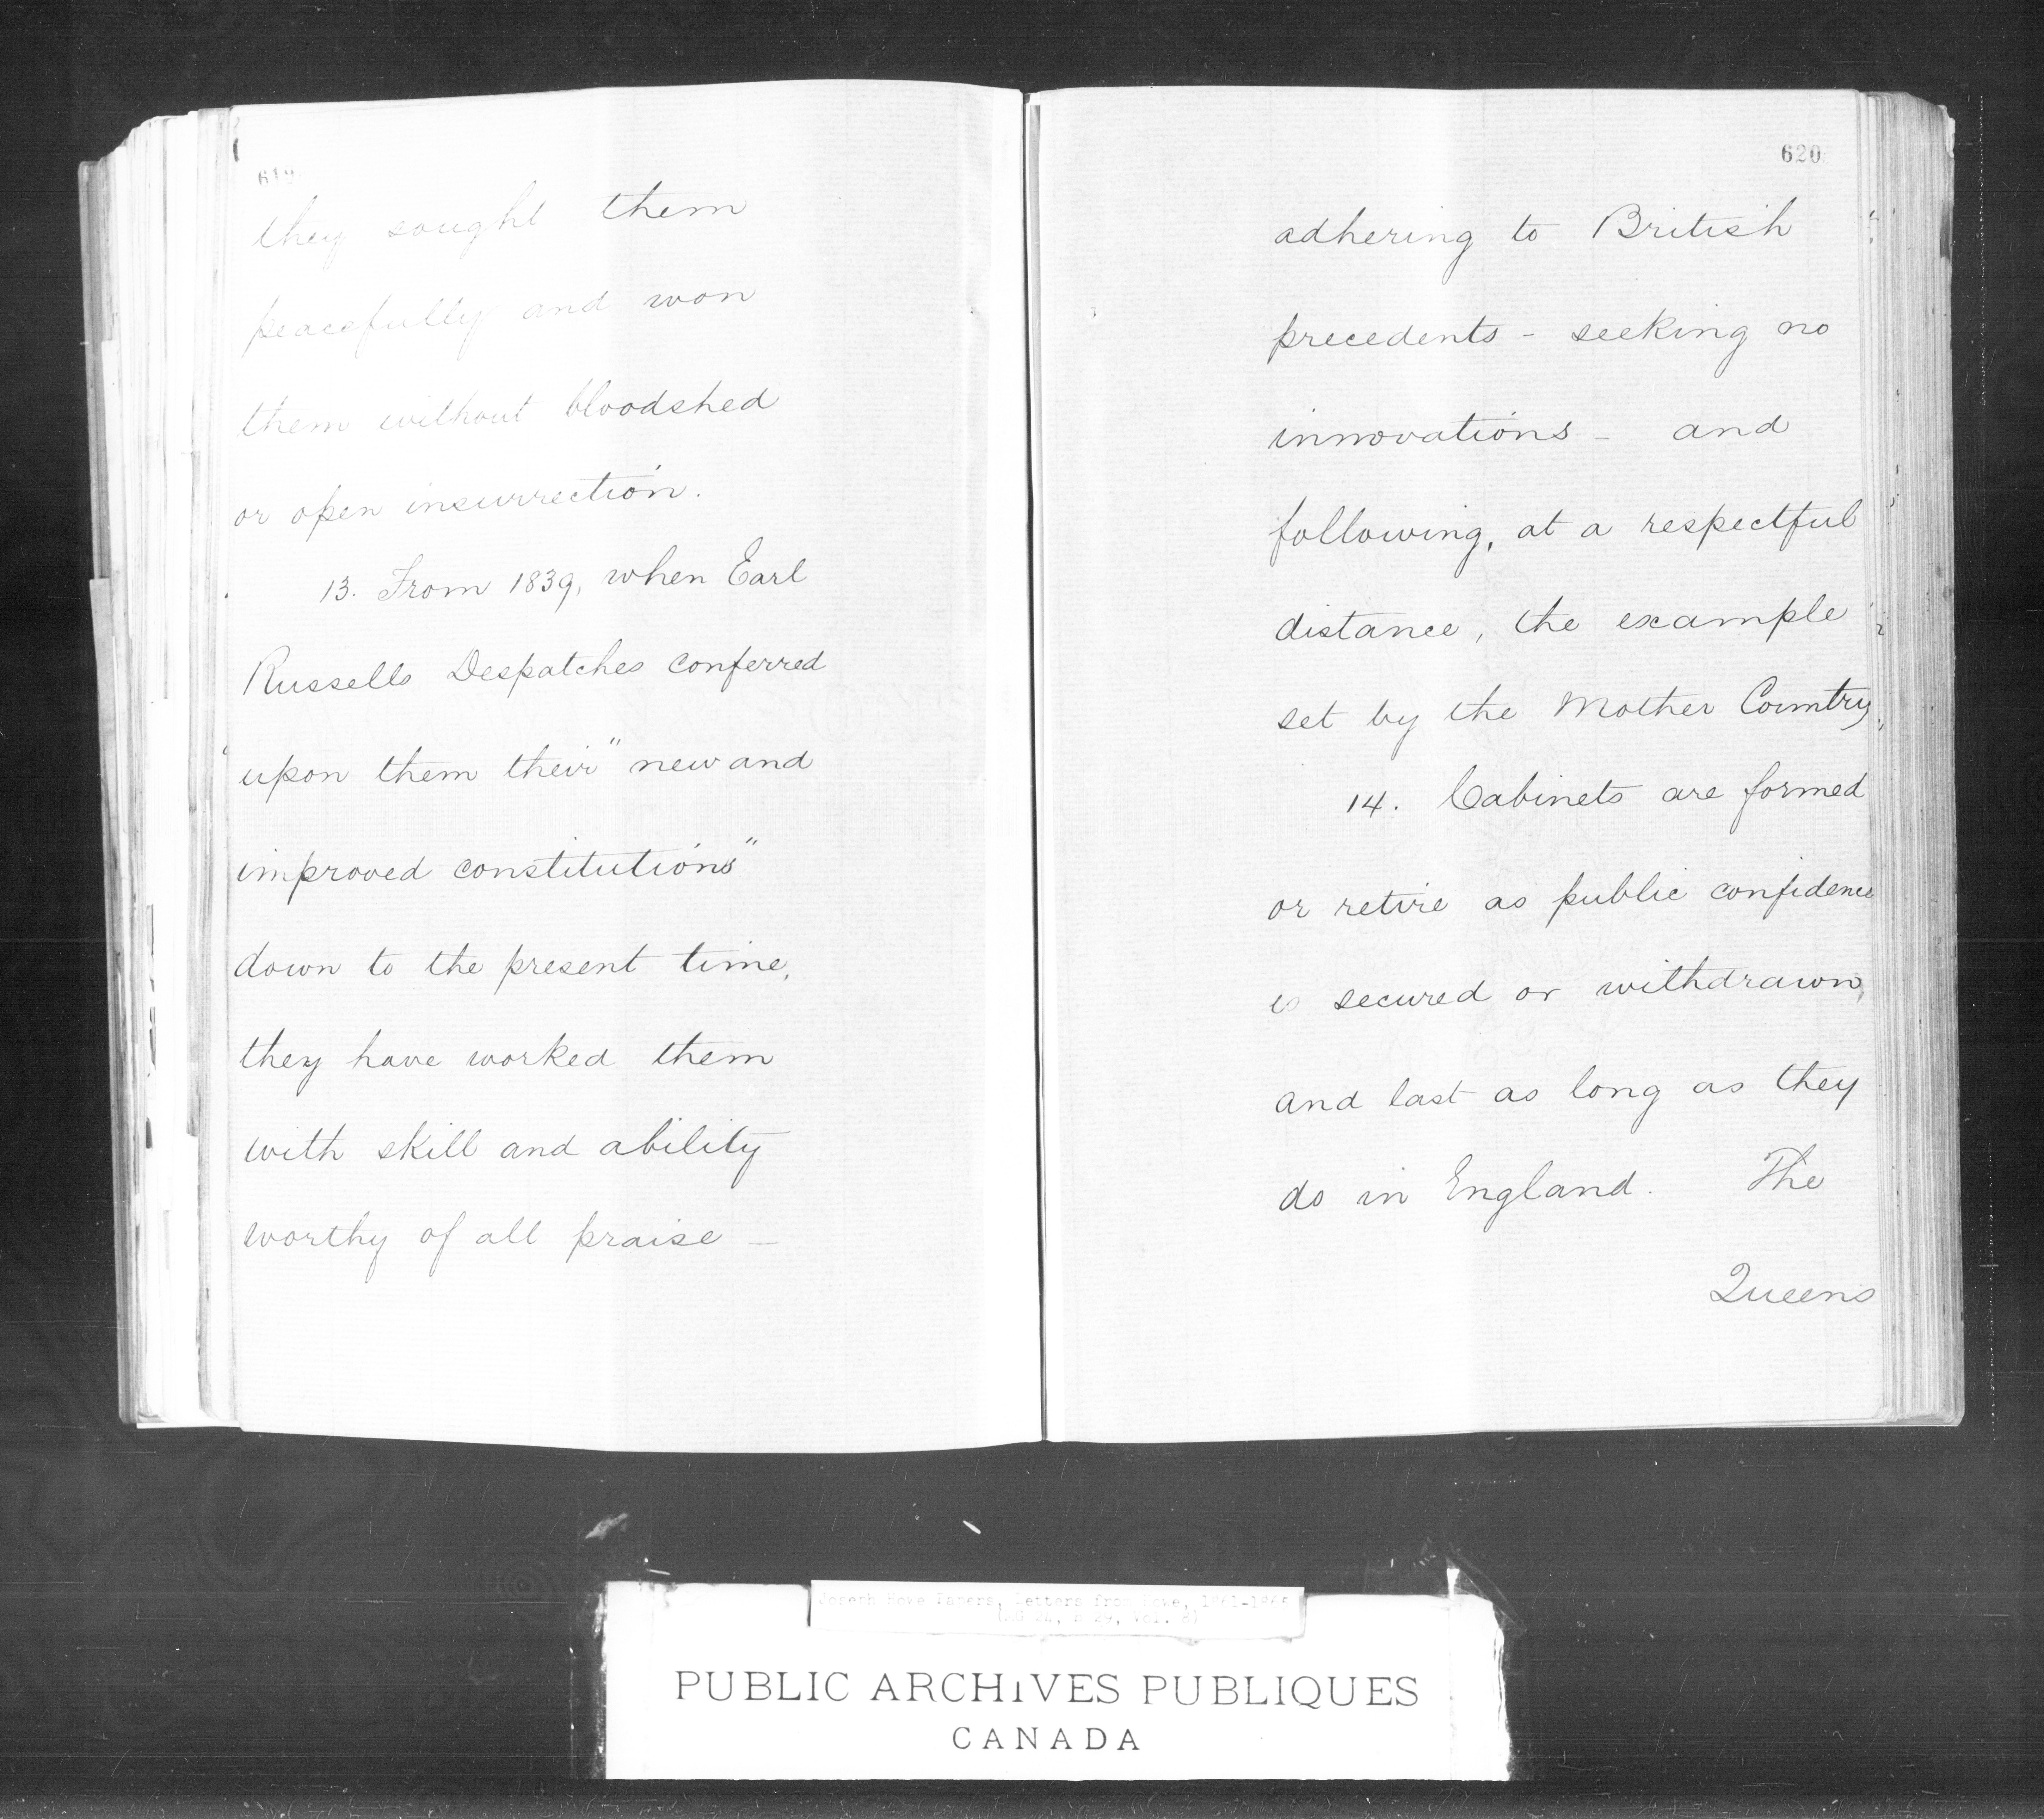 619
they sought them
peacefully and won
them without bloodshed
or open insurrection.
13. From 1839, when Earl
Russells Despatches conferred
upon them their "new and
improved constitutions"
down to the present time,
they have worked them
with skill and ability
worthy of all praise —
620
adhering to British
precedents - seeking no
innovations - and
following, at a respectful
distance, the example
set by the Mother Country,
14. Cabinets are formed
or retire as public confidence
is secured or withdrawn,
and last as long as they
do in England. The
Queens
Joseph Howe Papers, Letters from Howe, 1861-1865
(MG 24, B 29, Vol. 8)
PUBLIC ARCHIVES PUBLIQUES
CANADA